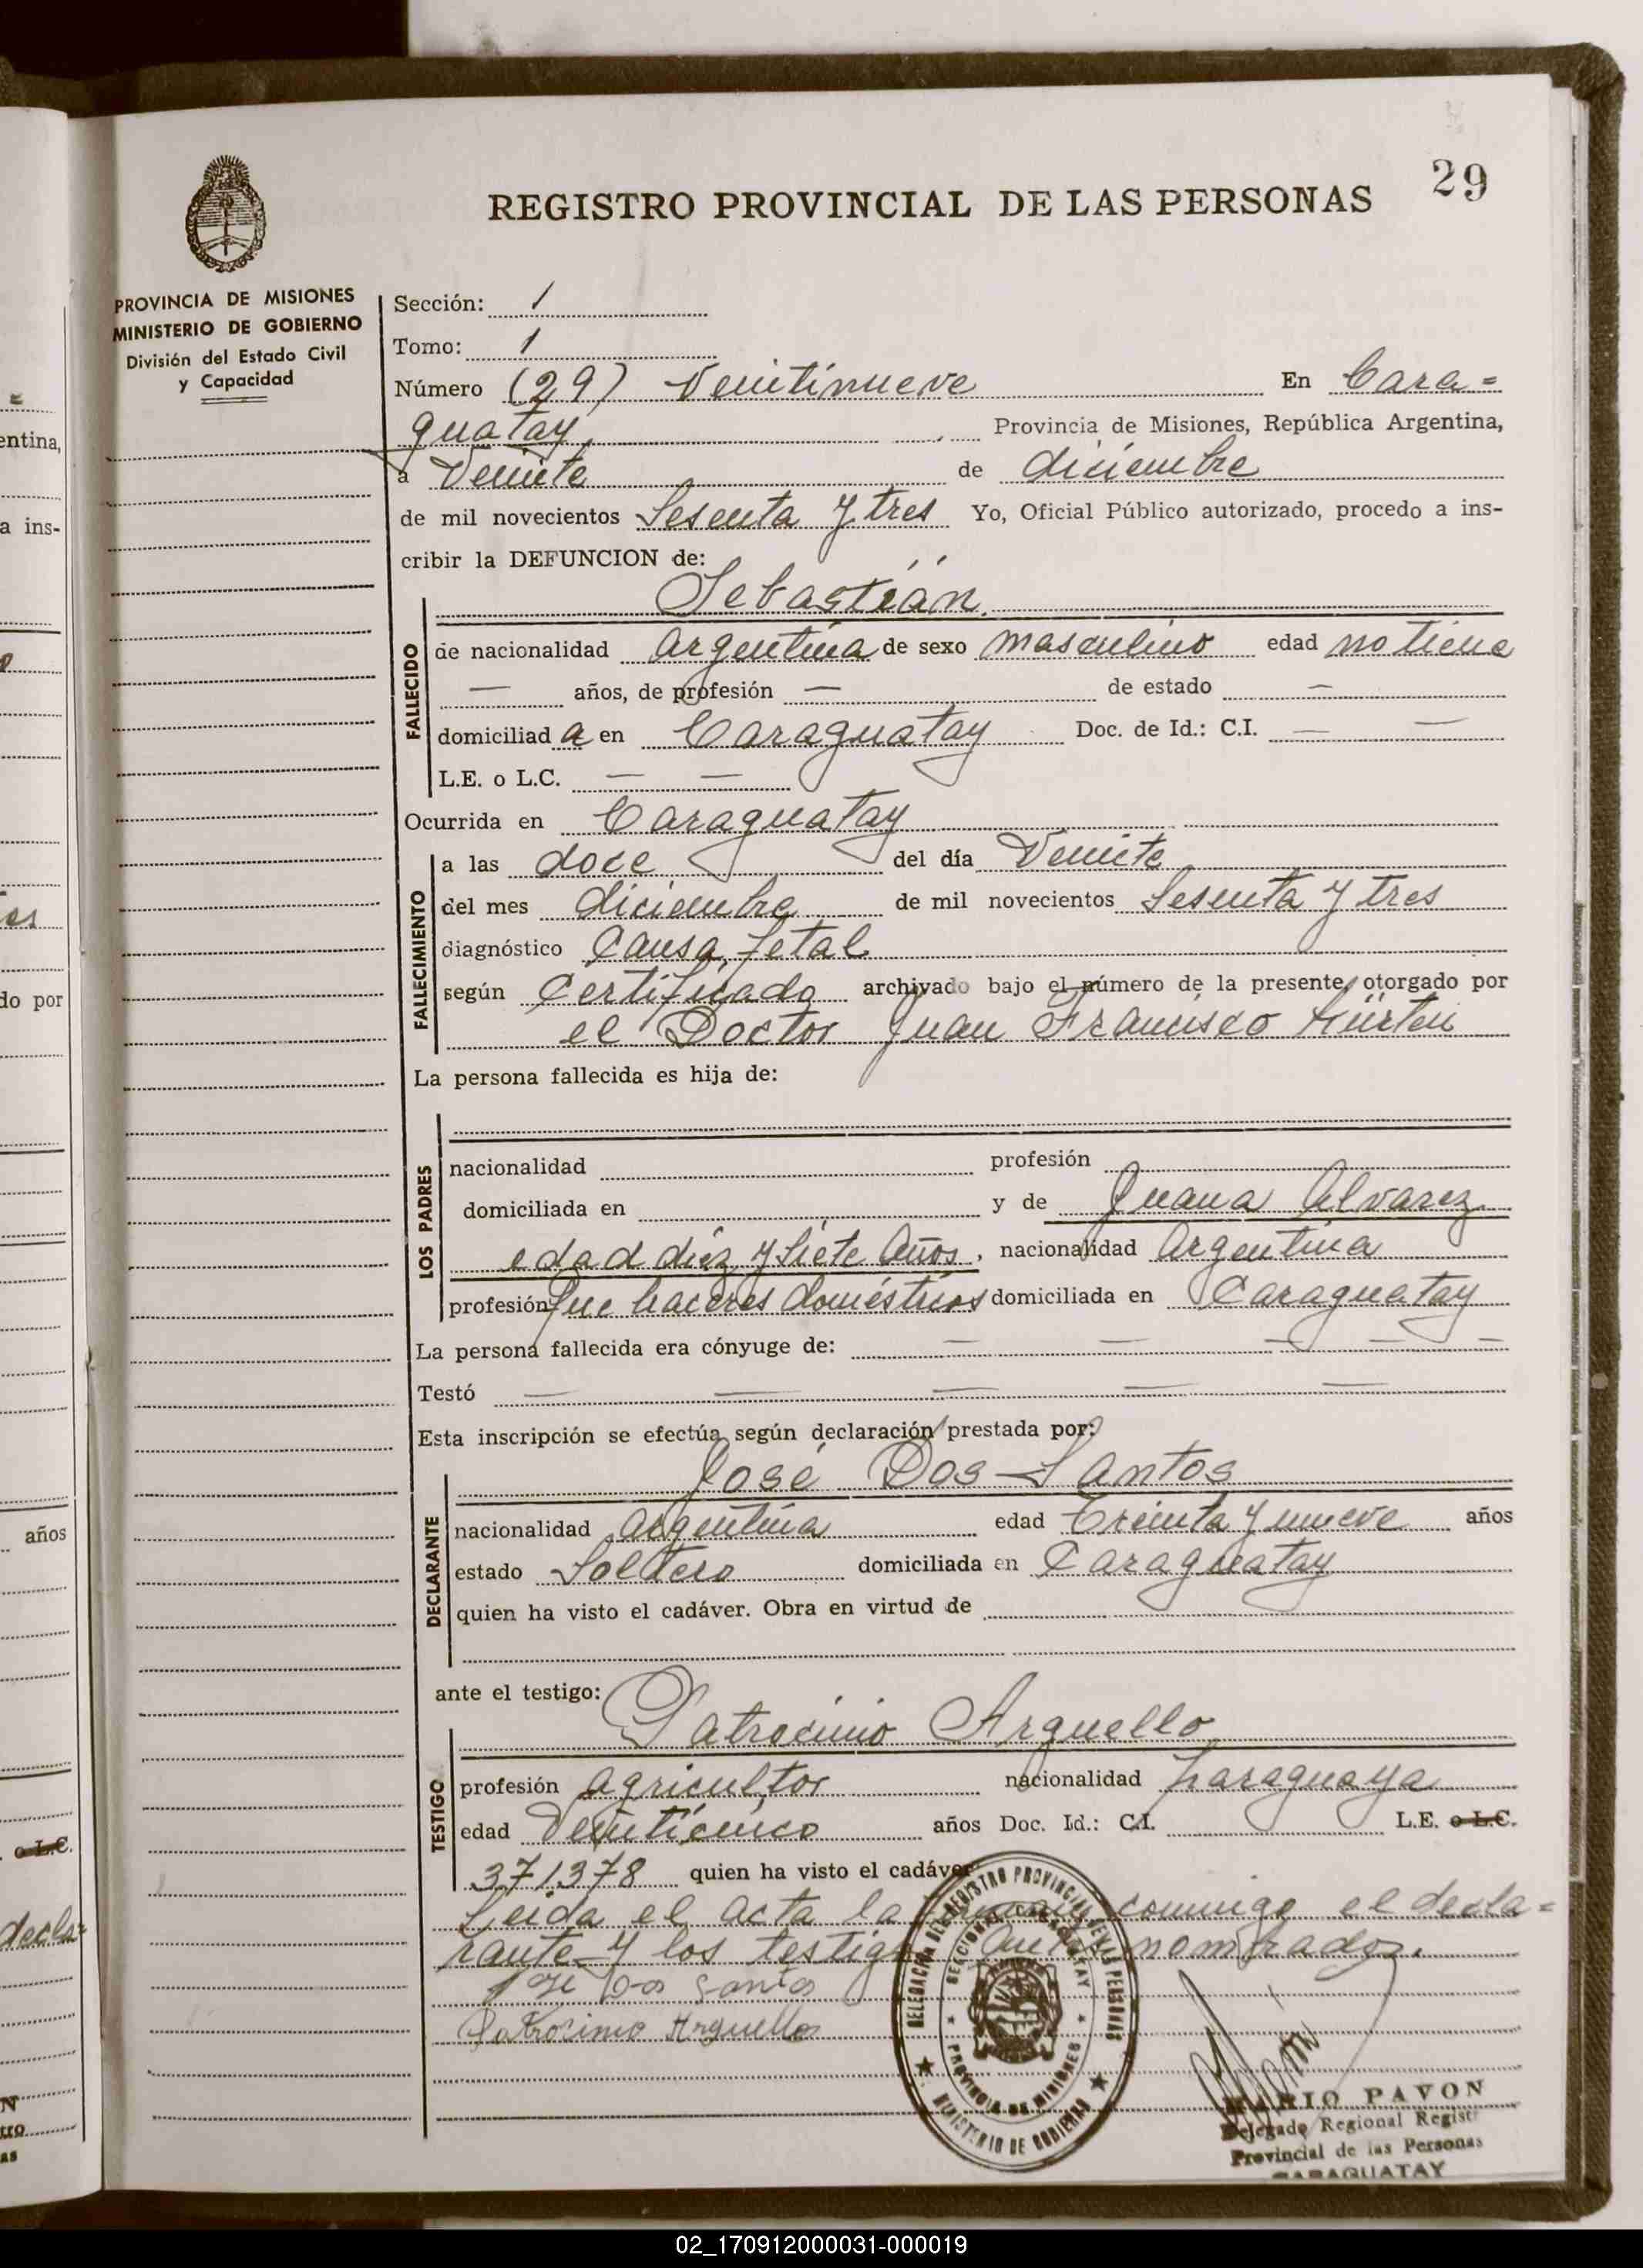 29
REGISTRO PROVINCIAL DE LAS PERSONAS
PROVINCIA DE MISIONES
MINISTERIO DE GOBIERNO
División del Estado Civil
y Capacidad
Sección: 1
Tomo: 1
Número (29) Veintinueve En Cara=
guatay, Provincia de Misiones, República Argentina,
a Veinte de diciembre
de mil novecientos Sesenta y tres Yo, Oficial Público autorizado, procedo a ins-
cribir la DEFUNCION de:
Sebastián
FALLECIDO
de nacionalidad Argentina de sexo masculino edad no tiene
— años, de profesión — de estado —
domiciliad a en Caraguatay Doc. de Id.: C.I. — —
L.E. o L.C. — —
Ocurrida en Caraguatay
FALLECIMIENTO
a las doce del día Veinte
del mes diciembre de mil novecientos Sesenta y tres
diagnóstico Causa fetal
según Certificado archivado bajo el número de la presente, otorgado por
el Doctor Juan Francisco
La persona fallecida es hija de:
LOS PADRES
nacionalidad profesión
domiciliada en y de Juana Alvarez
edad diez y siete Años, nacionalidad Argentina
profesión que haceres domésticos domiciliada en Caraguatay
La persona fallecida era cónyuge de: — — — — —
Testó — — — — —
Esta inscripción se efectúa según declaración prestada por:
José Dos Santos
DECLARANTE
nacionalidad argentina edad Treinta y nueve años
estado Soltero domiciliada en Caraguatay
quien ha visto el cadáver. Obra en virtud de
ante el testigo:
Patrocinio Arguello
TESTIGO
profesión agricultor nacionalidad Paraguaya
edad Veinticinco años Doc. Id.: C.I. L.E. o L.C.
371378 quien ha visto el cadáver
Leida el acta la conmigo el decla=
rante y los testigo nombrados.
José Dos Santos
Patrocinio Arguello
DELEGACION DEL REGISTRO PROVINCIAL DE LAS PERSONAS
SECCIONAL CARAGUATAY
PROVINCIA DE MISIONES
MINISTERIO DE GOBIERNO
MARIO PAVON
Delegado Regional Registr
Provincial de las Personas
CARAGUATAY
entina,
a ins-
do por
años
o L.C.
decla=
02_170912000031-000019